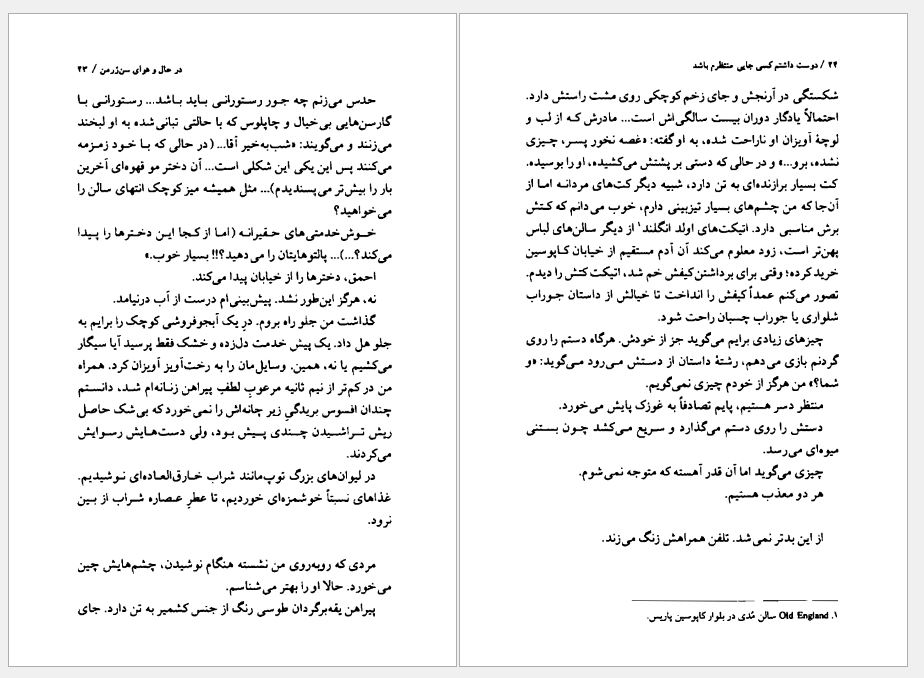 در حال و هوای سن‌ژرمن / ۴۳
حدس می‌زنم چه جور رستورانی باید باشد... رستورانی با
گارسن‌هایی بی‌خیال و چاپلوس که با حالتی تبانی‌شده به او لبخند
می‌زنند و می‌گویند: «شب‌به‌خیر آقا...(در حالی که با خود زمزمه
می‌کنند پس این یکی این شکلی است... آن دختر مو قهوه‌ای آخرین
بار را بیش‌تر می‌پسندیدم)... مثل همیشه میز کوچک انتهای سالن را
می‌خواهید؟
خوش‌خدمتی‌های حقیرانه (اما از کجا این دخترها را پیدا
می‌کند؟...)... پالتوهایتان را می‌دهید؟!! بسیار خوب.»
احمق، دخترها را از خیابان پیدا می‌کند.
نه، هرگز این‌طور نشد. پیش‌بینی‌ام درست از آب درنیامد.
گذاشت من جلو راه بروم. درِ یک آبجوفروشی کوچک را برایم به
جلو هل داد. یک پیش خدمت دل‌زده و خشک فقط پرسید آیا سیگار
می‌کشیم یا نه، همین. وسایل‌مان را به رخت‌آویز آویزان کرد. همراه
من در کم‌تر از نیم ثانیه مرعوبِ لطف پیراهن زنانه‌ام شد، دانستم
چندان افسوس بریدگیِ زیر چانه‌اش را نمی‌خورد که بی‌شک حاصل
ریش تراشیدن چندی پیش بود، ولی دست‌هایش رسوایش
می‌کردند.
در لیوان‌های بزرگ توپ‌مانند شراب خارق‌العاده‌ای نوشیدیم.
غذاهای نسبتاً خوشمزه‌ای خوردیم، تا عطرِ عصاره شراب از بین
نرود.
مردی که روبه‌روی من نشسته هنگام نوشیدن، چشم‌هایش چین
می‌خورد. حالا او را بهتر می‌شناسم.
پیراهن یقه‌برگردان طوسی رنگ از جنس کشمیر به تن دارد. جای
۴۴ / دوست داشتم کسی جایی منتظرم باشد
شکستگی در آرنجش و جای زخم کوچکی روی مشت راستش دارد.
احتمالاً یادگار دوران بیست سالگی‌اش است... مادرش که از لب و
لوچهٔ آویزان او ناراحت شده، به او گفته: «غصه نخور پسر، چیزی
نشده، برو...» و در حالی که دستی بر پشتش می‌کشیده، او را بوسیده.
کت بسیار برازنده‌ای به تن دارد، شبیه دیگر کت‌های مردانه اما از
آن‌جا که من چشم‌های بسیار تیزبینی دارم، خوب می‌دانم که کتش
برش مناسبی دارد. اتیکت‌های اولد انگلند۱ از دیگر سالن‌های لباس
پهن‌تر است، زود معلوم می‌کند آن آدم مستقیم از خیابان کاپوسین
خرید کرده؛ وقتی برای برداشتن کیفش خم شد، اتیکت کتش را دیدم.
تصور می‌کنم عمداً کیفش را انداخت تا خیالش از داستان جوراب
شلواری یا جوراب چسبان راحت شود.
چیزهای زیادی برایم می‌گوید جز از خودش. هرگاه دستم را روی
گردنم بازی می‌دهم، رشتهٔ داستان از دستش می‌رود می‌گوید: «و
شما؟» من هرگز از خودم چیزی نمی‌گویم.
منتظر دسر هستیم، پایم تصادفاً به غوزک پایش می‌خورد.
دستش را روی دستم می‌گذارد و سریع می‌کشد چون بستنی
میوه‌ای می‌رسد.
چیزی می‌گوید اما آن قدر آهسته که متوجه نمی‌شوم.
هر دو معذب هستیم.
از این بدتر نمی‌شد. تلفن همراهش زنگ می‌زند.
۱. Old England سالن مُدی در بلوار کاپوسین پاریس.